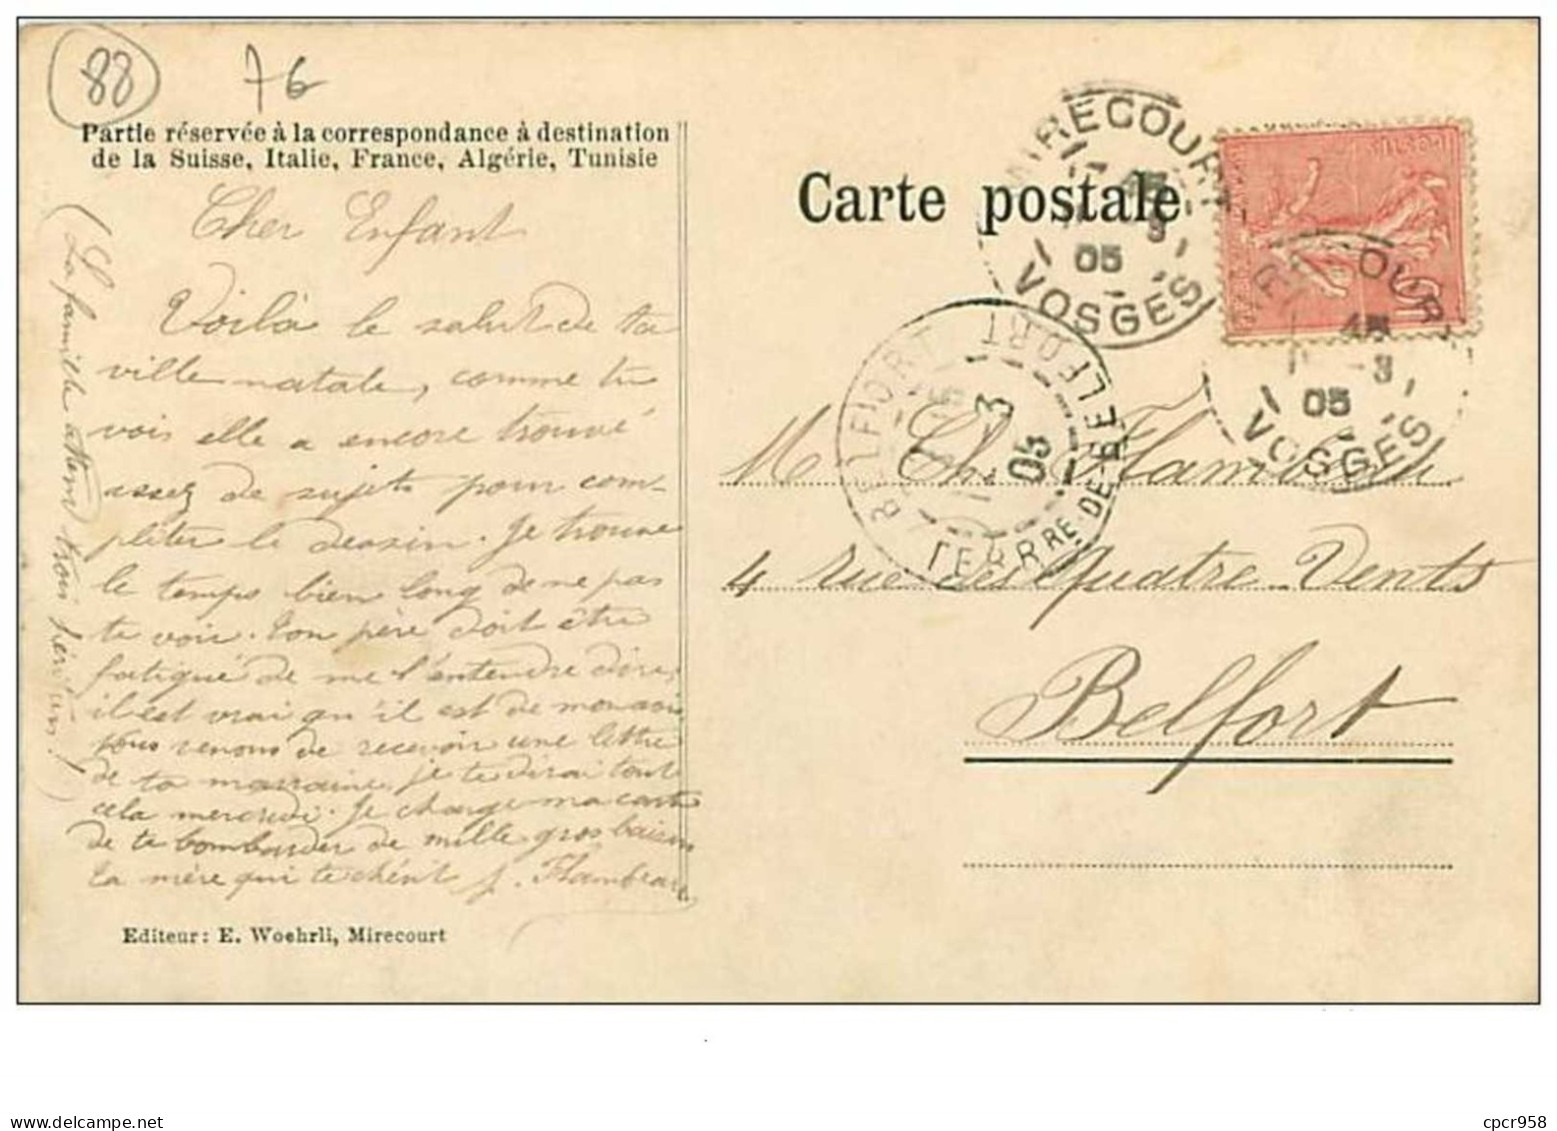 88
76
Partie réservée à la correspondance à destination
de la Suisse, Italie, France, Algérie, Tunisie
Cher Enfant
Voilà le salut de ta
ville natale, comme tu
vois elle a encore trouvé
assez de sujets pour com-
pléter le dessin. Je trouve
le temps bien long de ne pas
te voir. Ton père doit être
fatigué de me l'entendre dire,
il est vrai qu'il est de mon avis
nous venons de recevoir une lettre
de ta marraine, je te dirai tout
cela mercredi. Je charge ma carte
de te bombarder de mille gros baisers
ta mère qui te chérit J. Flambeau
(La famille attend trois
Editeur: E. Woehrli, Mirecourt
Carte postale
MIRECOURT
05
VOSGES
MIRECOURT
05
VOSGES
BELFORT BELFORT
3
05
TERRRE-DE-BELFORT
POSTES
10
M Ch. Flambeau
4 rue des Quatre-Vents
Belfort
cpcr958